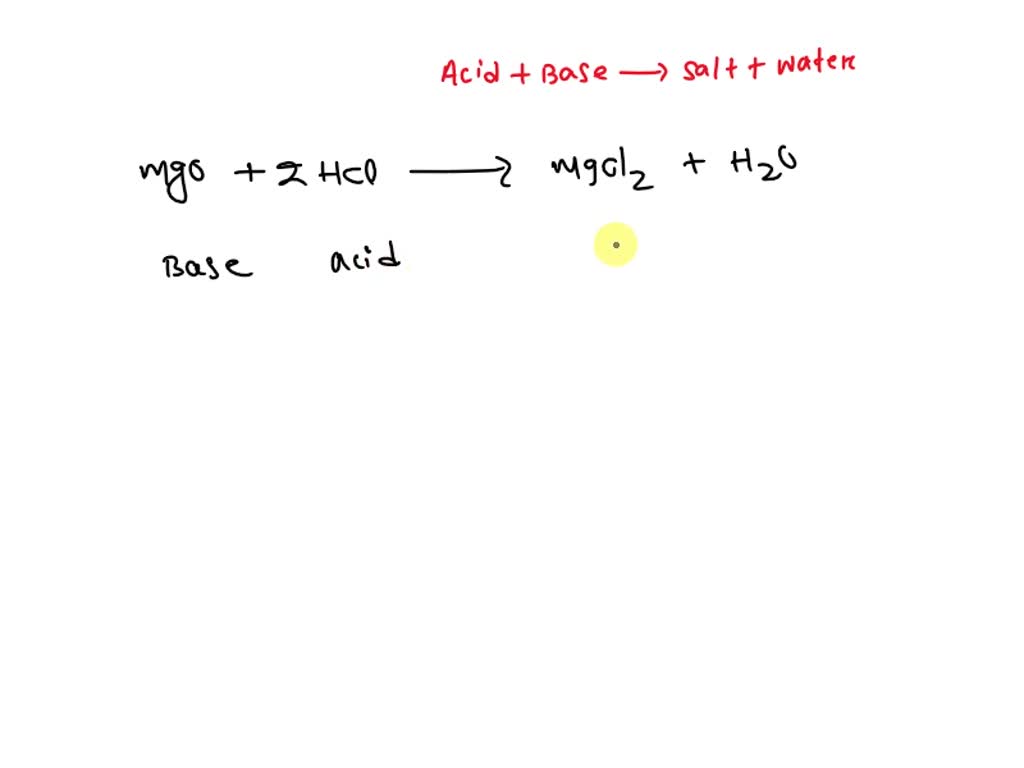 Acid + Base → salt + water
mgo + 2 HCl → mgCl₂ + H₂O
Base acid